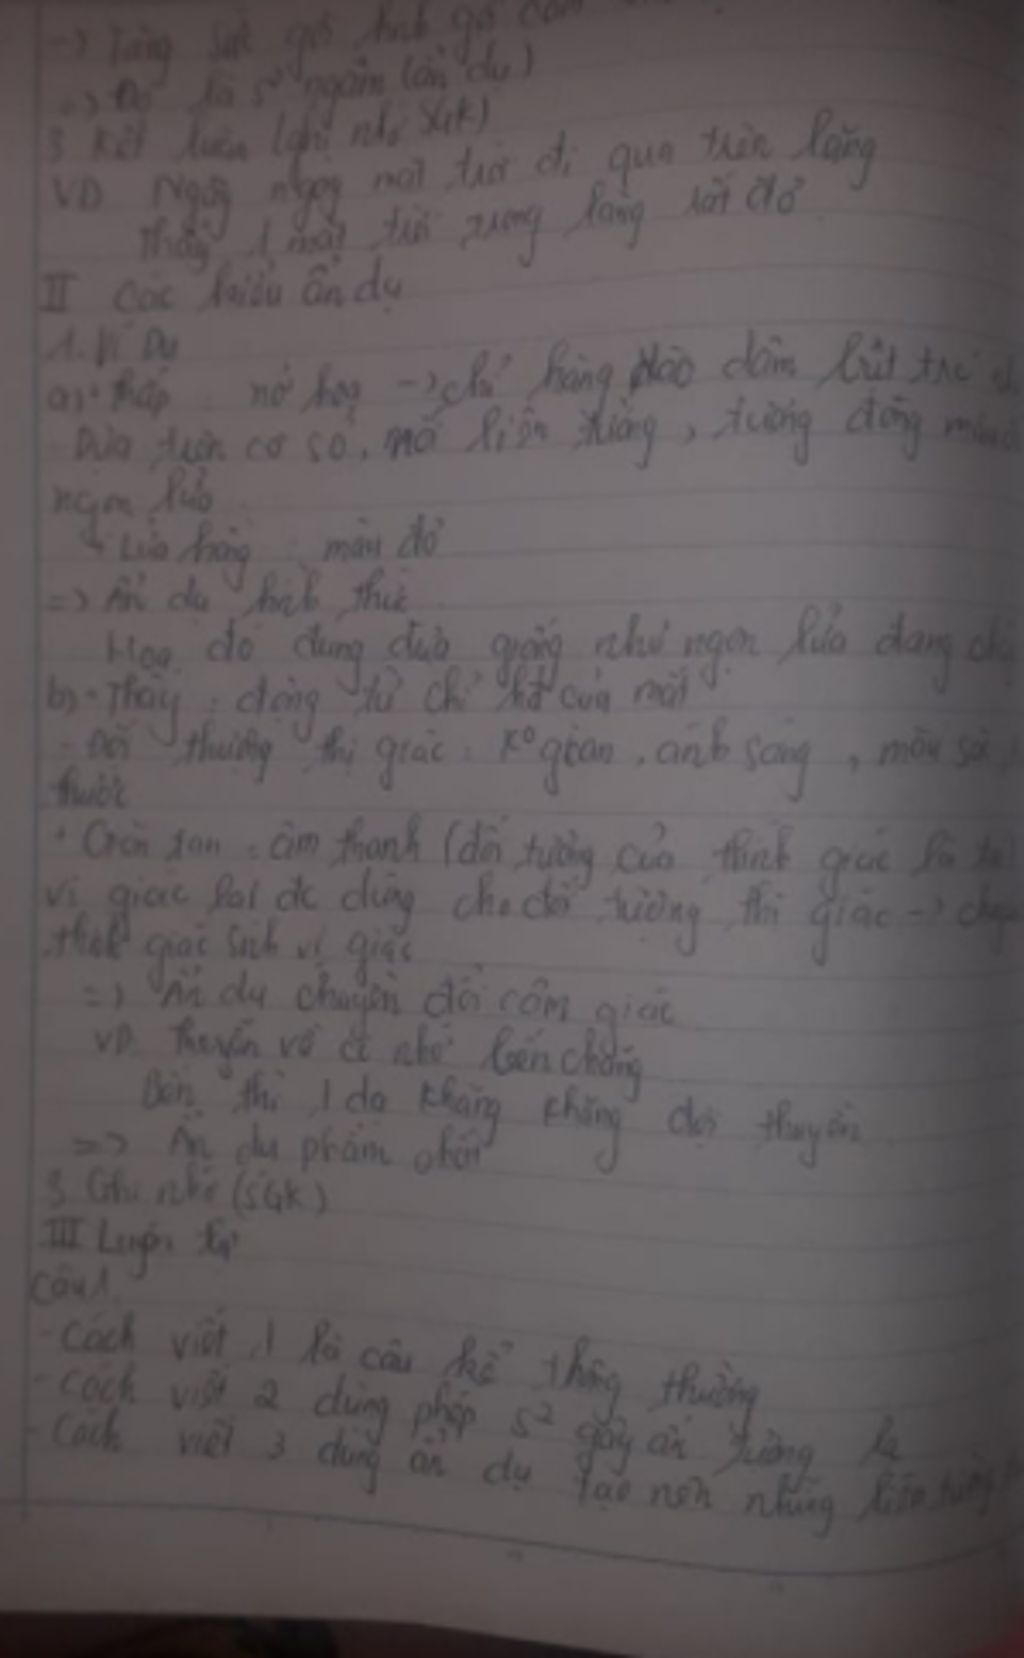 -> Tăng sức gợi hình gợi cảm
=> Đó là s² ngầm (ẩn dụ)
3 Kết luận (ghi nhớ SGK)
VD Ngày ngày mặt trời đi qua trên lăng
Thấy 1 mặt trời trong lăng rất đỏ
II Các kiểu ẩn dụ
1. Ví Dụ
a)- thắp : nở hoa -> chỉ hàng dâm bụt
- Dựa trên cơ sở, mối liên tưởng, tương đồng
ngọn lửa
Lửa hồng : màu đỏ
=> Ẩn dụ hình thức
Hoa đỏ đung đưa giống như ngọn lửa đang
b)- Thấy : động từ chỉ của mắt
- Đối thường thị giác : K° gian, ánh sáng, màu
thước
- Giòn tan : âm thanh (đối tường của thính giác là
vị giác lại đc dùng cho đối tượng thị giác ->
thính giác sinh vị giác
=> Ẩn dụ chuyển đổi cảm giác
VD. Thuyền về có nhớ bến chăng
Bến thì 1 dạ khăng khăng đợi thuyền
=> Ẩn dụ phẩm chất
3 Ghi nhớ (SGK)
III Luyện tập
Câu 1.
- Cách viết 1 là câu kể thông thường
- Cách viết 2 dùng phép s² gây ấn tường lạ
- Cách viết 3 dùng ẩn dụ tạo nên những liên tưởng